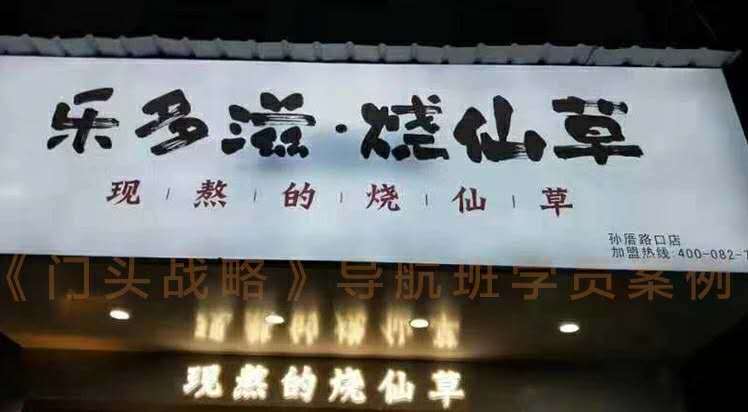 乐多滋·烧仙草
现|熬|的|烧|仙|草
孙厝路口店
加盟热线:400-082-
《门头战略》导航班学员案例
现熬的烧仙草